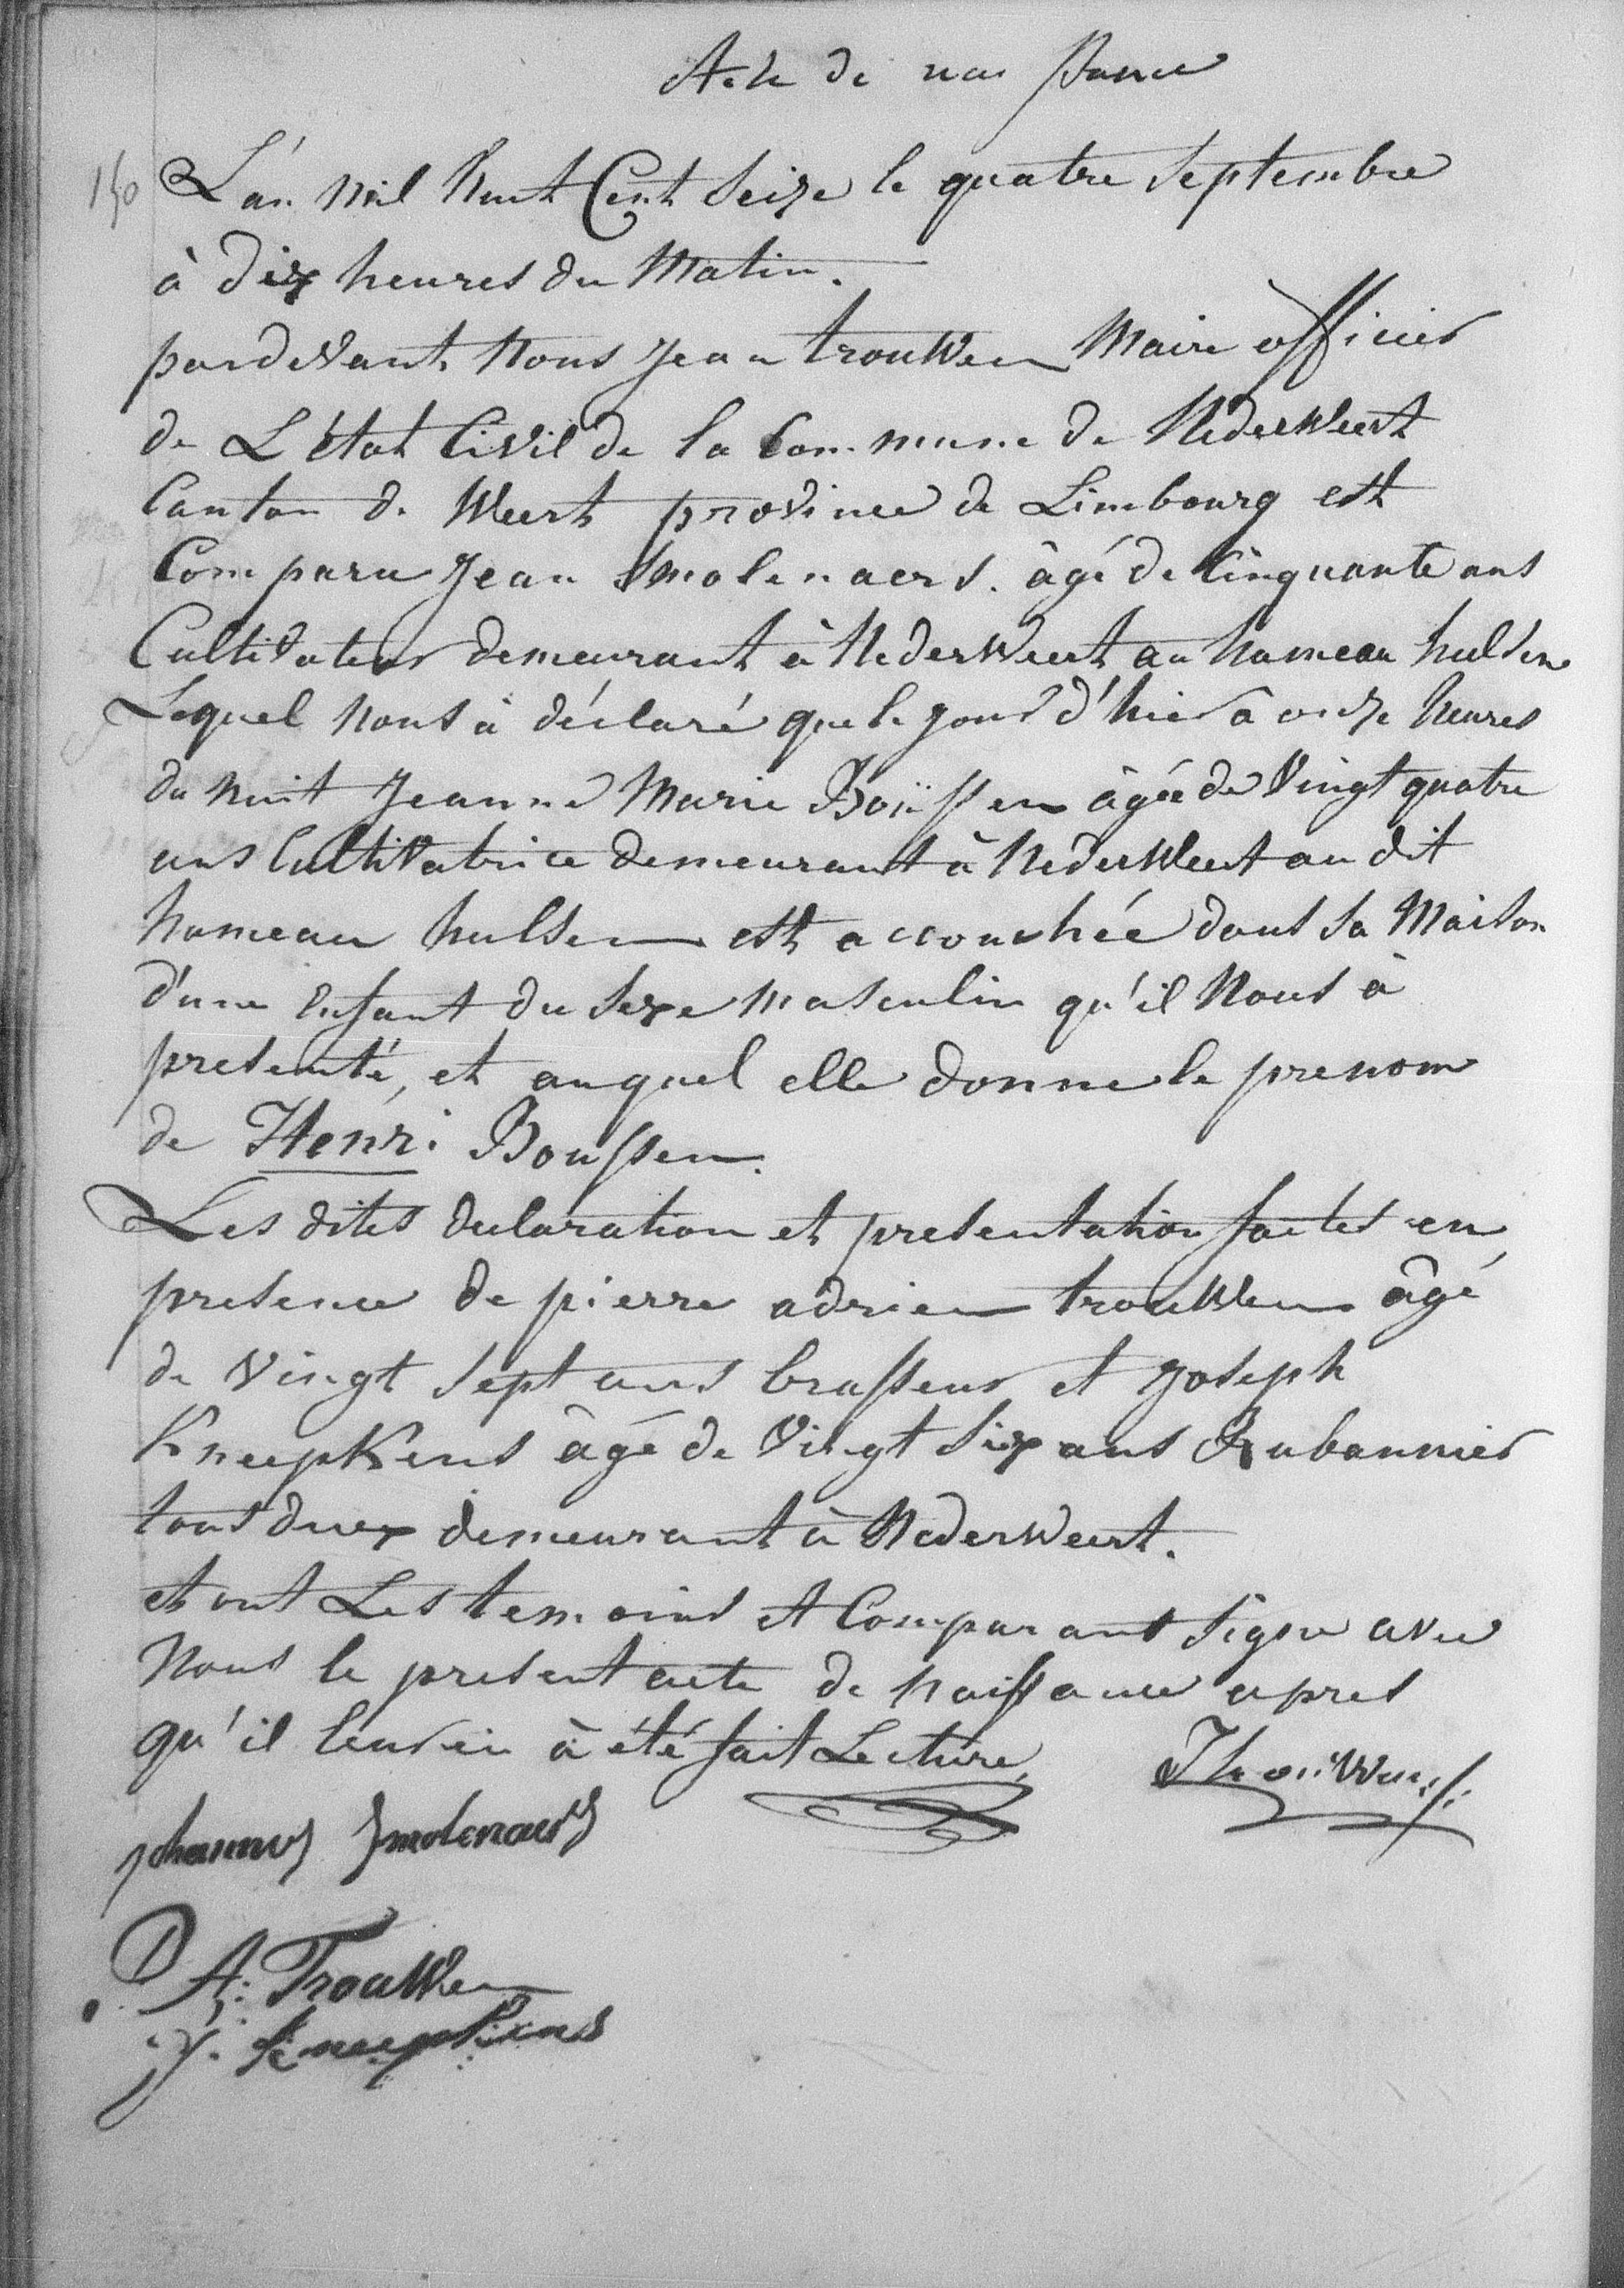 Acte de naissance
150
L'an mil huit Cent Seize le quatre Septembre
à dix heures du Matin.
pardevant Nous Jean trouwen Maire officier
de L'état Civil de la Commune de Nederweert
Canton de Weert province de Limbourg est
Comparu Jean Smolenaers. âgé de Cinquante ans
Cultivateur demeurant à Nederweert au hameau hulsen
Lequel Nous à déclaré que le jour d'hier à onze heures
du nuit Jeanne Marie Boüssen âgée de Vingt quatre
ans Cultivatrice demeurant à Nederweert au dit
hameau hulsen est accouchée dans sa Maison
d'une Enfant du Sexe masculin qu'il Nous à
presenté, et auquel elle donne le prenom
de Henri Boussen.
Les dites declaration et presentation faites en
presence de pierre adrien trouwen âgé
de Vingt Sept ans brasseur et Joseph
Kneepkens âgé de Vingt Six ans Rubannier
tous deux demeurant à Nederweert.
et ont Les temoins et Comparant Signé avec
Nous le present acte de Naissance apres
qu'il leur en à été fait Lecture,
Johannes Smolenaers
P A: Trouwen
J. Kneepkens